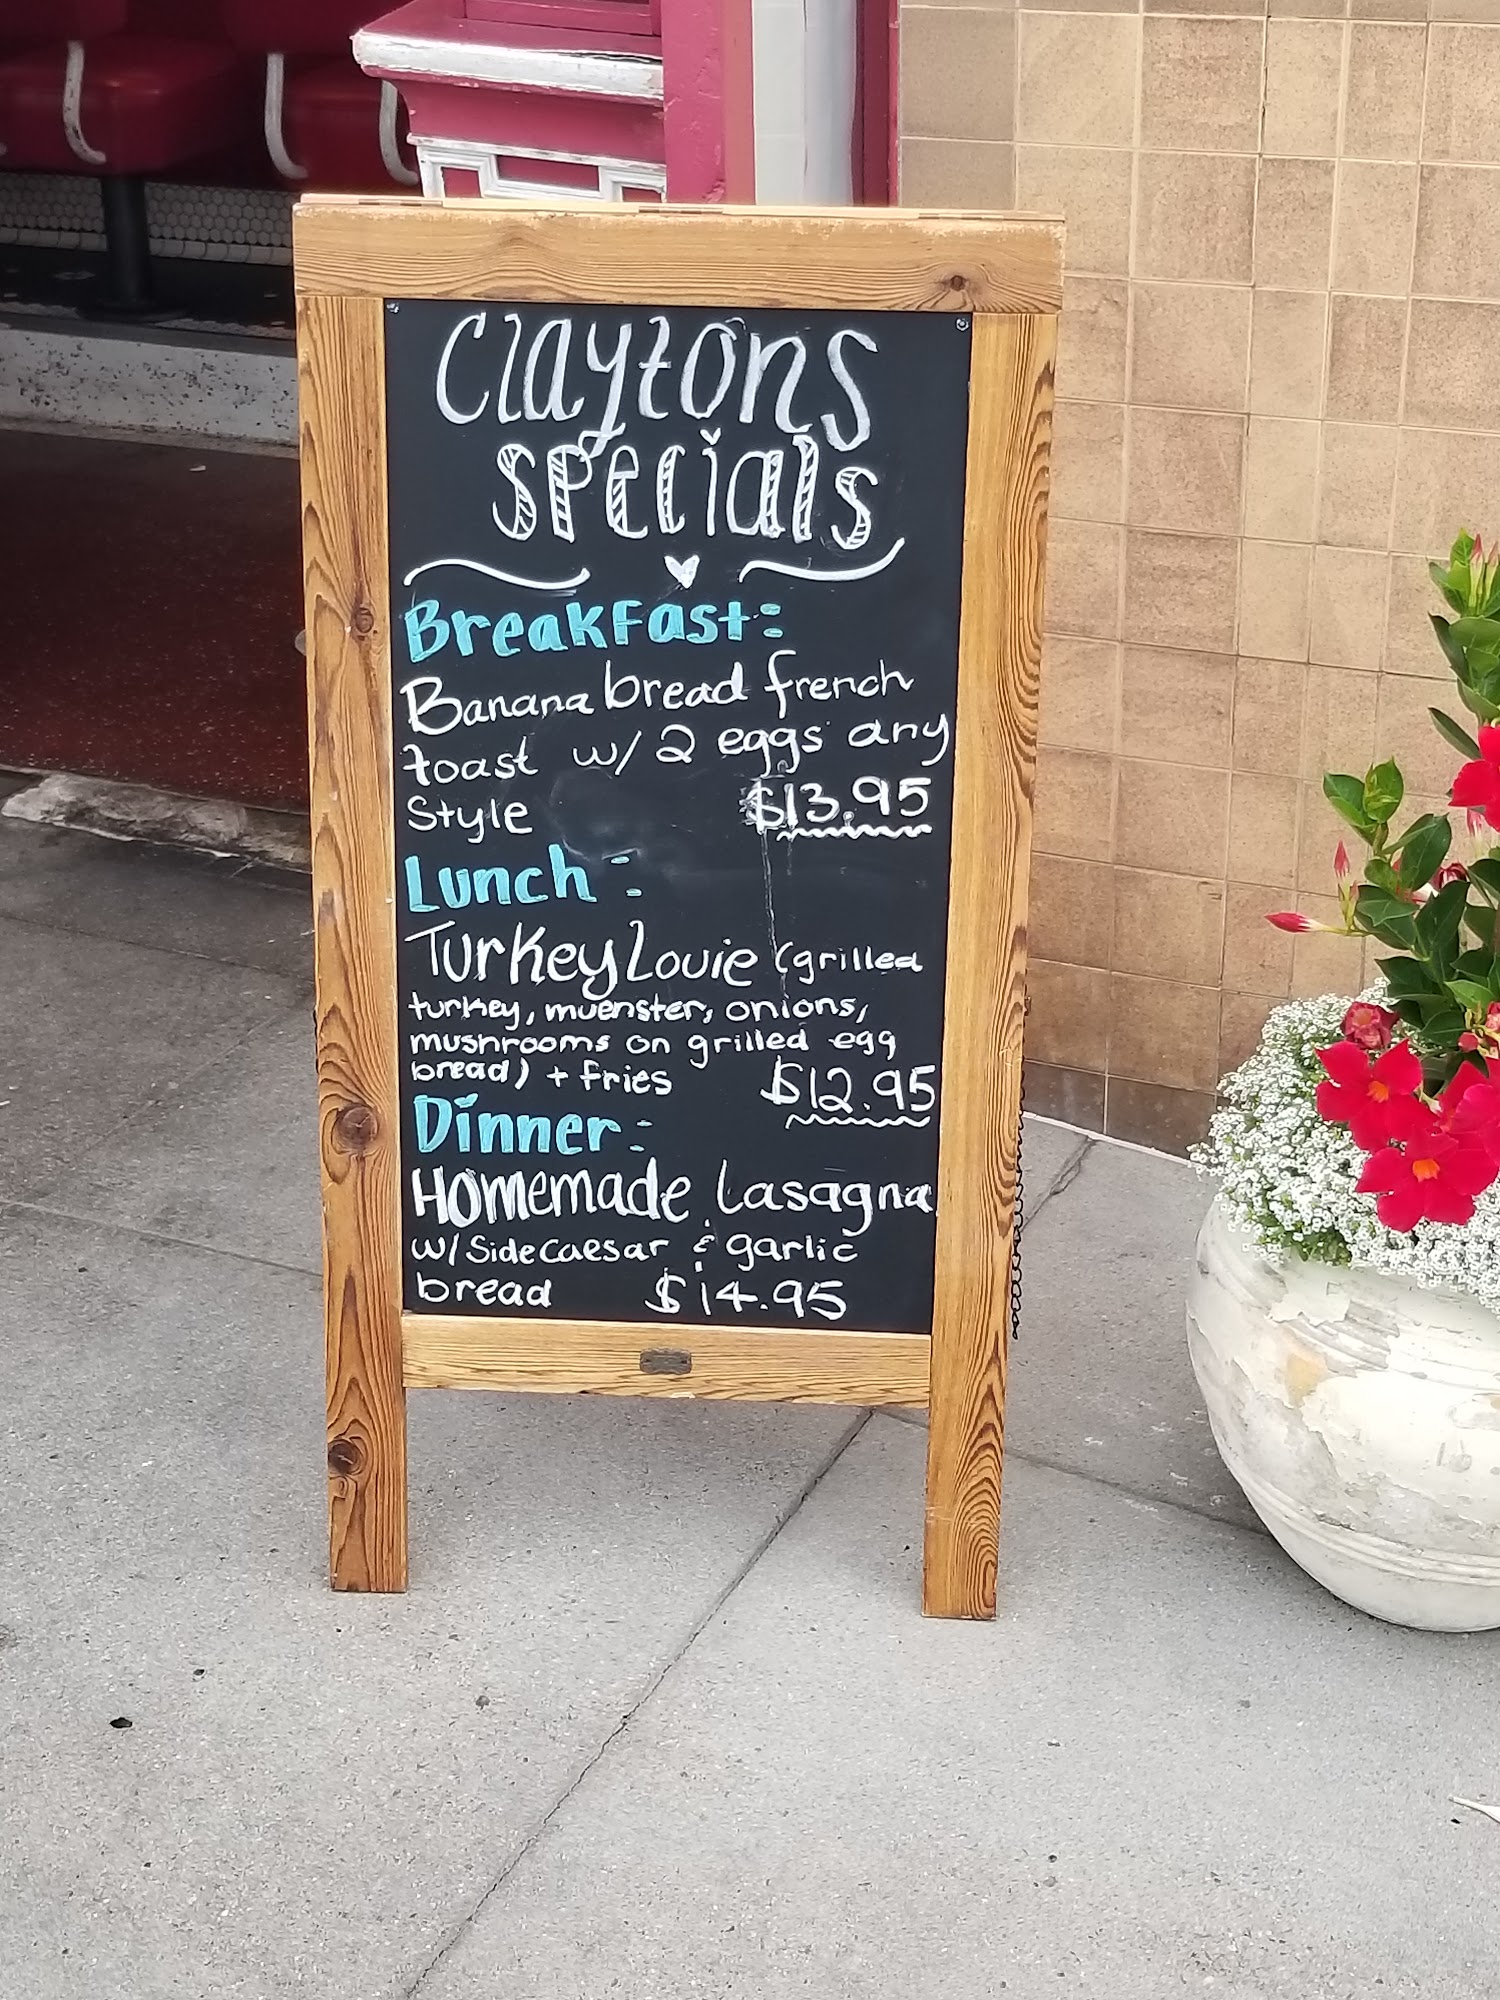 Claytons
Specials
Breakfast:
Banana bread french
toast w/ 2 eggs any
Style $13.95
Lunch:
Turkey Louie (grilled
turkey, muenster, onions,
mushrooms on grilled egg
bread) + fries $12.95
Dinner:
Homemade Lasagna
w/ Side caesar & garlic
bread $14.95